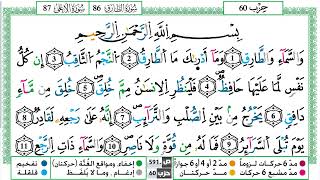 سورة الأعلى 87 سورة الطارق 86 حزب 60
بِسْمِ اللَّهِ الرَّحْمَٰنِ الرَّحِيمِ
وَالسَّمَاءِ وَالطَّارِقِ 1 وَمَا أَدْرَاكَ مَا الطَّارِقُ 2 النَّجْمُ الثَّاقِبُ 3 إِن كُلُّ
نَفْسٍ لَّمَّا عَلَيْهَا حَافِظٌ 4 فَلْيَنظُرِ الْإِنسَانُ مِمَّ خُلِقَ 5 خُلِقَ مِن مَّاءٍ
دَافِقٍ 6 يَخْرُجُ مِن بَيْنِ الصُّلْبِ وَالتَّرَائِبِ 7 إِنَّهُ عَلَىٰ رَجْعِهِ لَقَادِرٌ 8
يَوْمَ تُبْلَى السَّرَائِرُ 9 فَمَا لَهُ مِن قُوَّةٍ وَلَا نَاصِرٍ 10 وَالسَّمَاءِ ذَاتِ الرَّجْعِ 11
مدّ 6 حركات لزوماً مدّ 2 أو 4 أو 6 جوازاً ص 591 إخفاء ومواقع الغُنَّة (حركتان) تفخيم
مدّ حركتان حزب 60 إدغام، وما لا يُلفَظ قلقلة